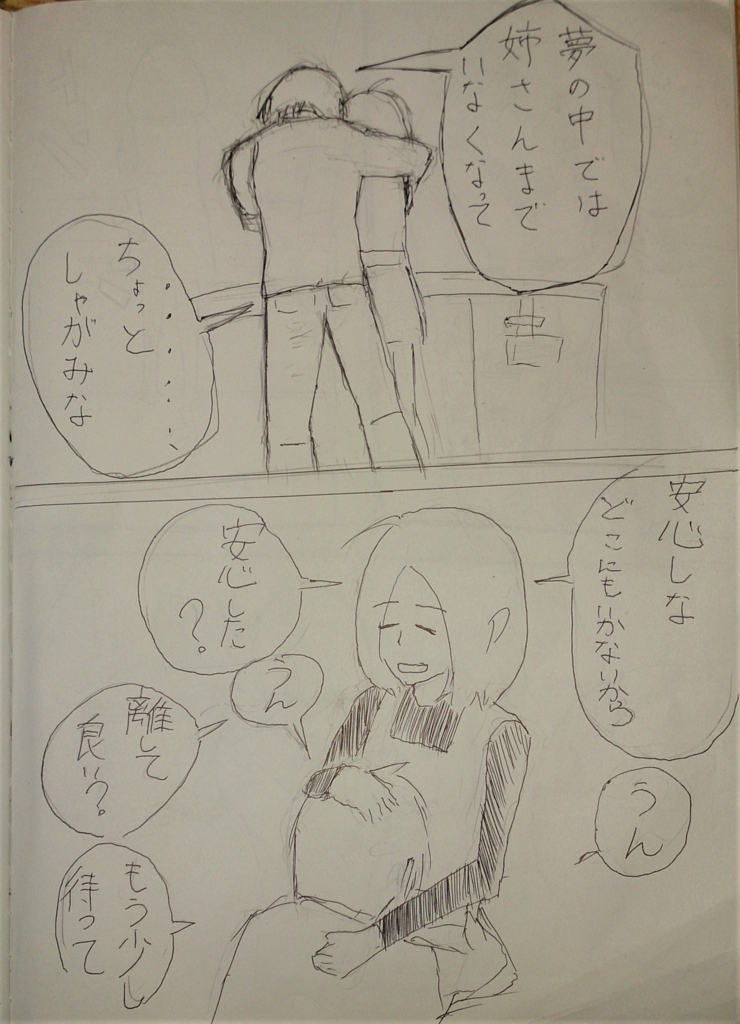 夢の中では
姉さんまで
いなくなって
・・・・・・・、
ちょっと
しゃがみな
安心しな
どこにもいかないから
うん
安心した
？
うん
離して
良い？
もう少し
待って